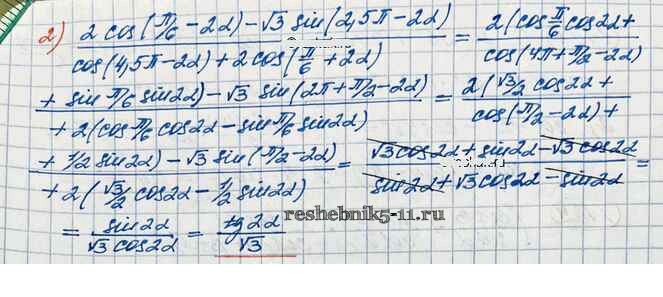 2) (2 cos(π/6 - 2α) - √3 sin(2,5π - 2α)) / (cos(4,5π - 2α) + 2 cos(π/6 + 2α)) = (2(cos π/6 cos2α + / cos(4π + π/2 - 2α)
+ sin π/6 sin2α) - √3 sin(2π + π/2 - 2α) / + 2(cos π/6 cos2α - sin π/6 sin2α) = 2(√3/2 cos2α + / cos(π/2 - 2α) +
+ 1/2 sin2α) - √3 sin(π/2 - 2α) / + 2(√3/2 cos2α - 1/2 sin2α) = √3 cos2α + sin2α - √3 cos2α / sin2α + √3 cos2α - sin2α =
= sin2α / √3 cos2α = tg2α / √3
reshebnik5-11.ru